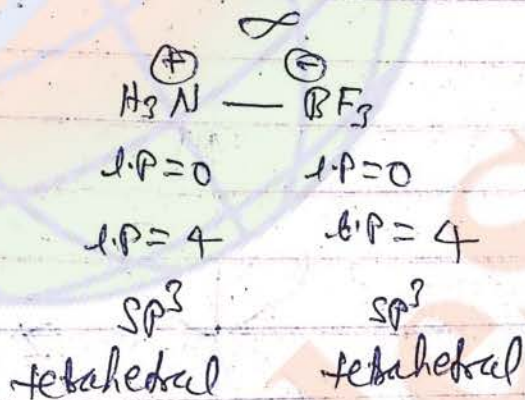 ∞
⊕ ⊖
H₃N — BF₃
l.P=0 l.P=0
l.P=4 b.P=4
sp³ sp³
tetrahedral tetrahedral